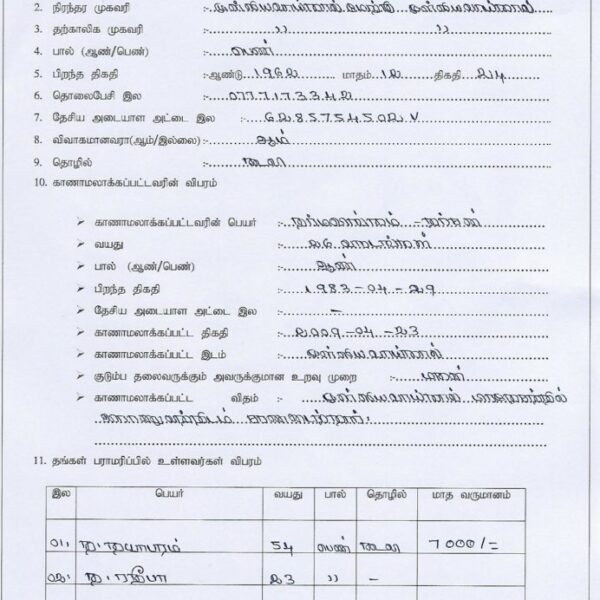 2. நிரந்தர முகவரி :- முள்ளிவாய்க்கால் முள்ளிவாய்க்கால்
3. தற்காலிக முகவரி :- ,, ,,
4. பால் (ஆண்/பெண்) :- பெண்
5. பிறந்த திகதி :-ஆண்டு 1962 மாதம் 12 திகதி 24
6. தொலைபேசி இல :- 0771733342
7. தேசிய அடையாள அட்டை இல :- 6285754502 V
8. விவாகமானவரா(ஆம்/இல்லை):- ஆம்
9. தொழில் :- கூலி
10. காணாமலாக்கப்பட்டவரின் விபரம்
➢ காணாமலாக்கப்பட்டவரின் பெயர் :-
➢ வயது :- 26 வயது
➢ பால் (ஆண்/பெண்) :- ஆண்
➢ பிறந்த திகதி :- 1983-04-29
➢ தேசிய அடையாள அட்டை இல :- –
➢ காணாமலாக்கப்பட்ட திகதி :- 2009-04-23
➢ காணாமலாக்கப்பட்ட இடம் :- முள்ளிவாய்க்கால்
➢ குடும்ப தலைவருக்கும் அவருக்குமான உறவு முறை :- மகன்
➢ காணாமலாக்கப்பட்ட விதம் :- முள்ளிவாய்க்கால்
11. தங்கள் பராமரிப்பில் உள்ளவர்கள் விபரம்
இல பெயர் வயது பால் தொழில் மாத வருமானம்
01. த. 54 பெண் கூலி 7000/=
02. த. 23 ,, –